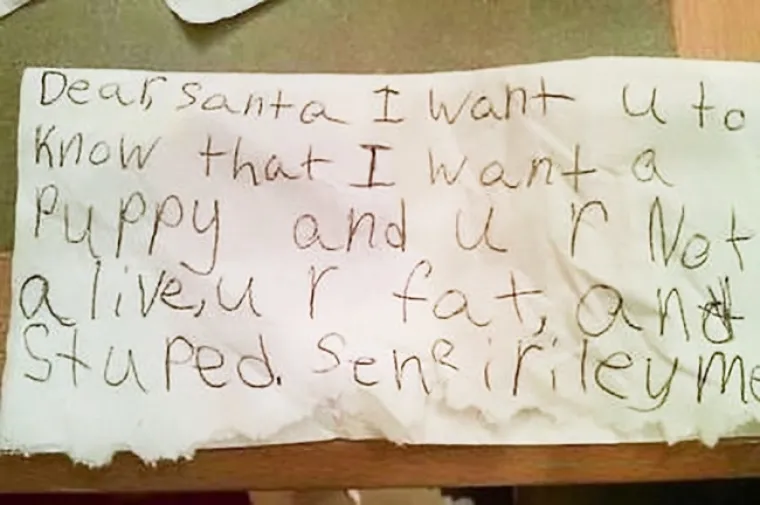 Dear, santa I want u to
know that I want a
Puppy and u r Not
alive, u r fat, and
Stuped. seneirileyme